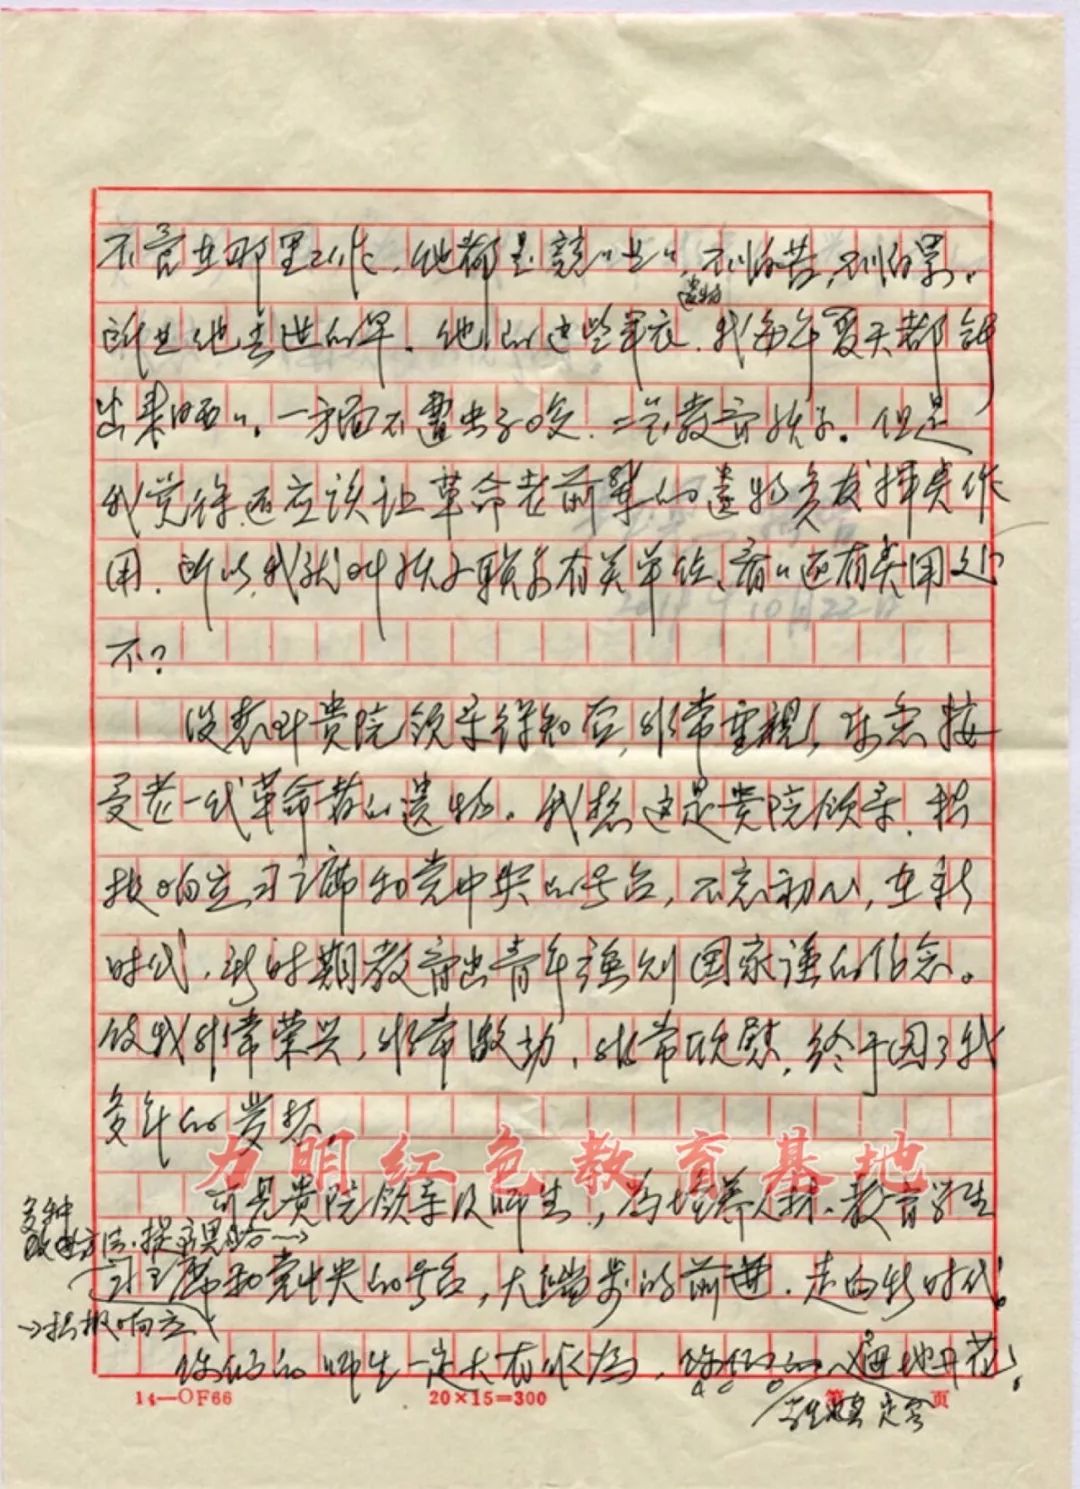 不管在那里工作，他都是兢兢业业，不怕苦，不怕累。
遗物
所以他去世的早。他的这些军衣，我每年夏天都翻
出来晒晒。一方面不遭虫子咬，二是教育孩子。但是
我觉得还应该让革命老前辈的遗物多发挥点作
用，所以，我就叫孩子联系有关单位，看看还有点用处
不？
没想到贵院领导得知后，非常重视，愿意接
受老一代革命者的遗物。我想这是贵院领导，积
极响应习主席和党中央的号召，不忘初心，在新
时代，新时期教育出青年强则国家强的信念。
使我非常荣兴，非常激动，非常欣慰，终于圆了我
多年的梦想。
力明红色教育基地
可见贵院领导及师生，为培养人才、教育学生
多种
教育方法，提高果
→积极响应
习主席和党中央的号召，大踏步的前进，走向新时代。
你们的师生一定大有作为，你们的 遍地开花！
14—OF66
20×15=300
第 页